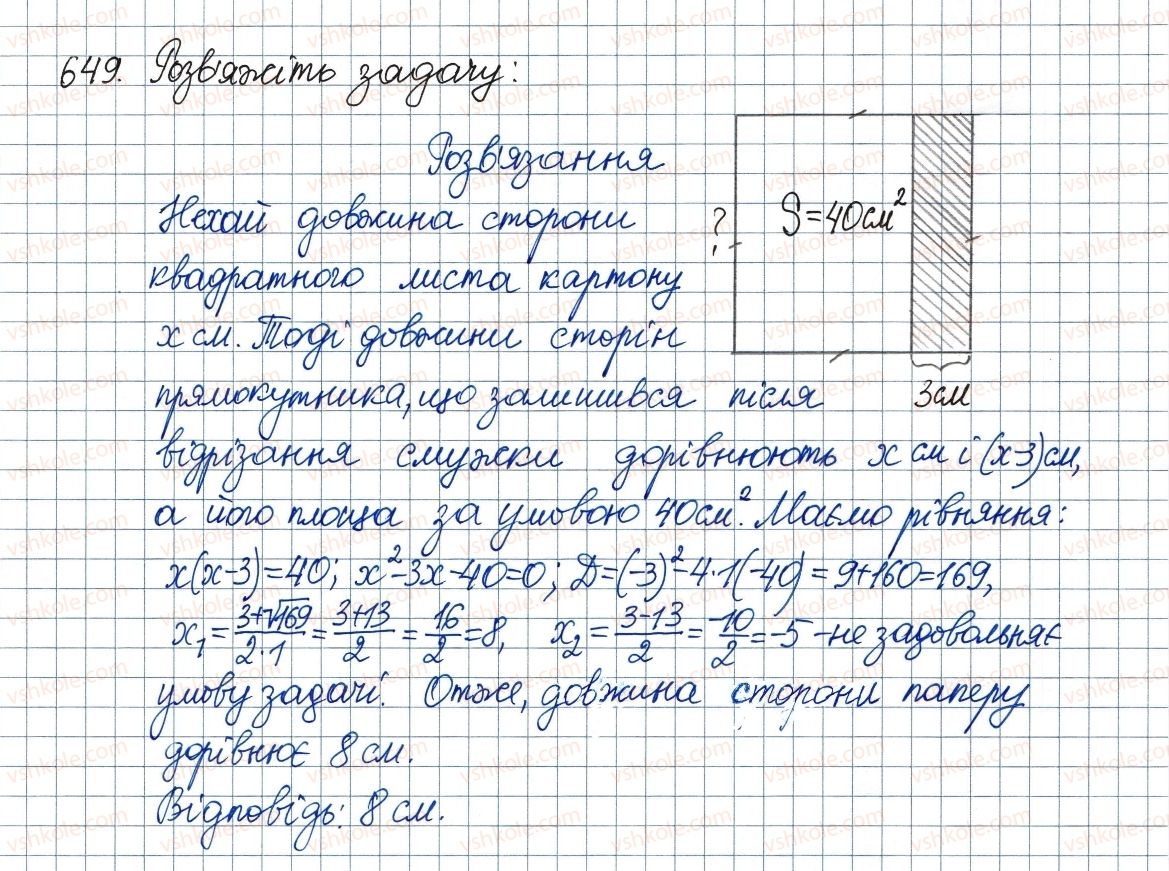 649. Розв'яжіть задачу:
Розв'язання
Нехай довжина сторони
квадратного листа картону
x см. Тоді довжини сторін
прямокутника, що залишився після
відрізання смужки дорівнюють x см і (x-3) см,
а його площа за умовою 40 см². Маємо рівняння:
x(x-3)=40; x²-3x-40=0; D=(-3)²-4·1(-40)=9+160=169,
x₁=(3+√169)/(2·1)=(3+13)/2=16/2=8, x₂=(3-13)/2=-10/2=-5-не задовольняє
умову задачі. Отже, довжина сторони паперу
дорівнює 8 см.
Відповідь: 8 см.
?
S=40 см²
3 см
vshkole.com